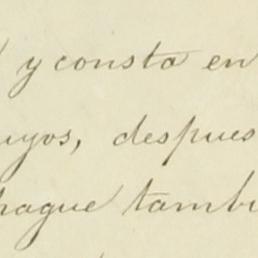 y consta en
uyos, despues
hague tambi